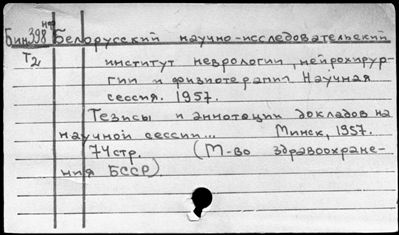 Бин398 Белорусский научно-исследовательский
Т2 институт неврологии, нейрохирур-
гии и физиотерапии. Научная
сессия. 1957.
Тезисы и аннотации докладов на
научной сессии... Минск, 1957.
74 стр. (М-во здравоохране-
ния БССР).